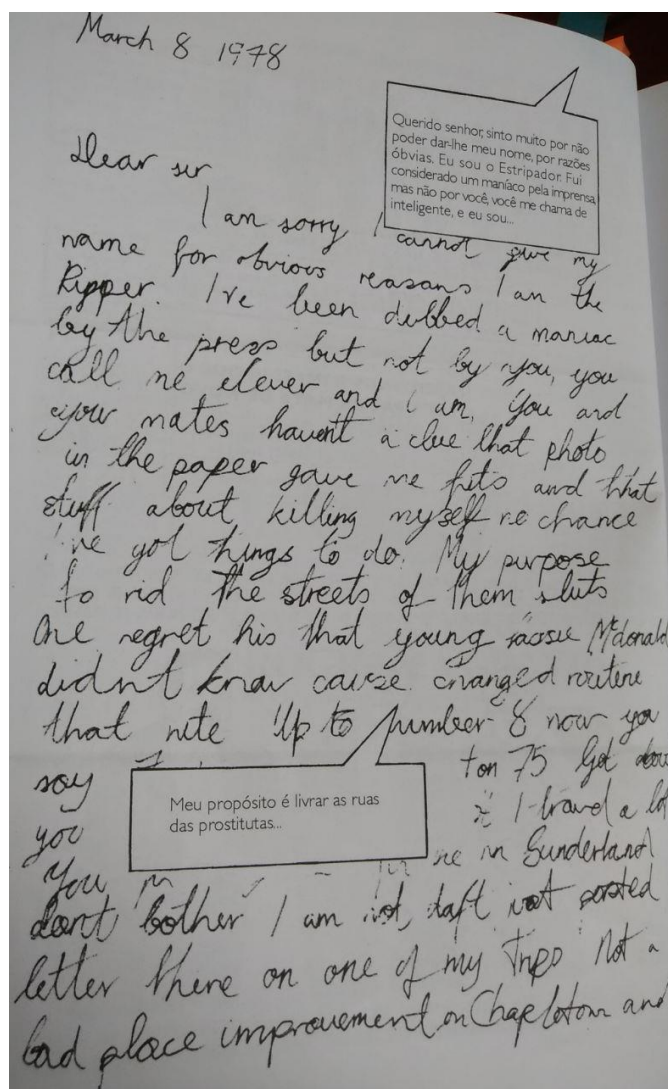 March 8 1978
Querido senhor, sinto muito por não
poder dar-lhe meu nome, por razões
óbvias. Eu sou o Estripador. Fui
considerado um maníaco pela imprensa,
mas não por você, você me chama de
inteligente, e eu sou...
Dear sir
I am sorry I cannot give my
name for obvious reasons I am the
Ripper. I've been dubbed a maniac
by the press but not by you, you
call me clever and I am. You and
your mates havent a clue that photo
in the paper gave me fits and that
stuff about killing myself no chance
I've got things to do. My purpose
to rid the streets of them sluts
One regret his that young lassie McDonald
didnt know cause changed routine
that nite Up to number 8 now you
say ton 75 Get about
Meu propósito é livrar as ruas
das prostitutas...
you I travel a lot
You me in Sunderland
dont bother I am not daft just posted
letter there on one of my trips Not a
bad place improvement on Chapeltown and